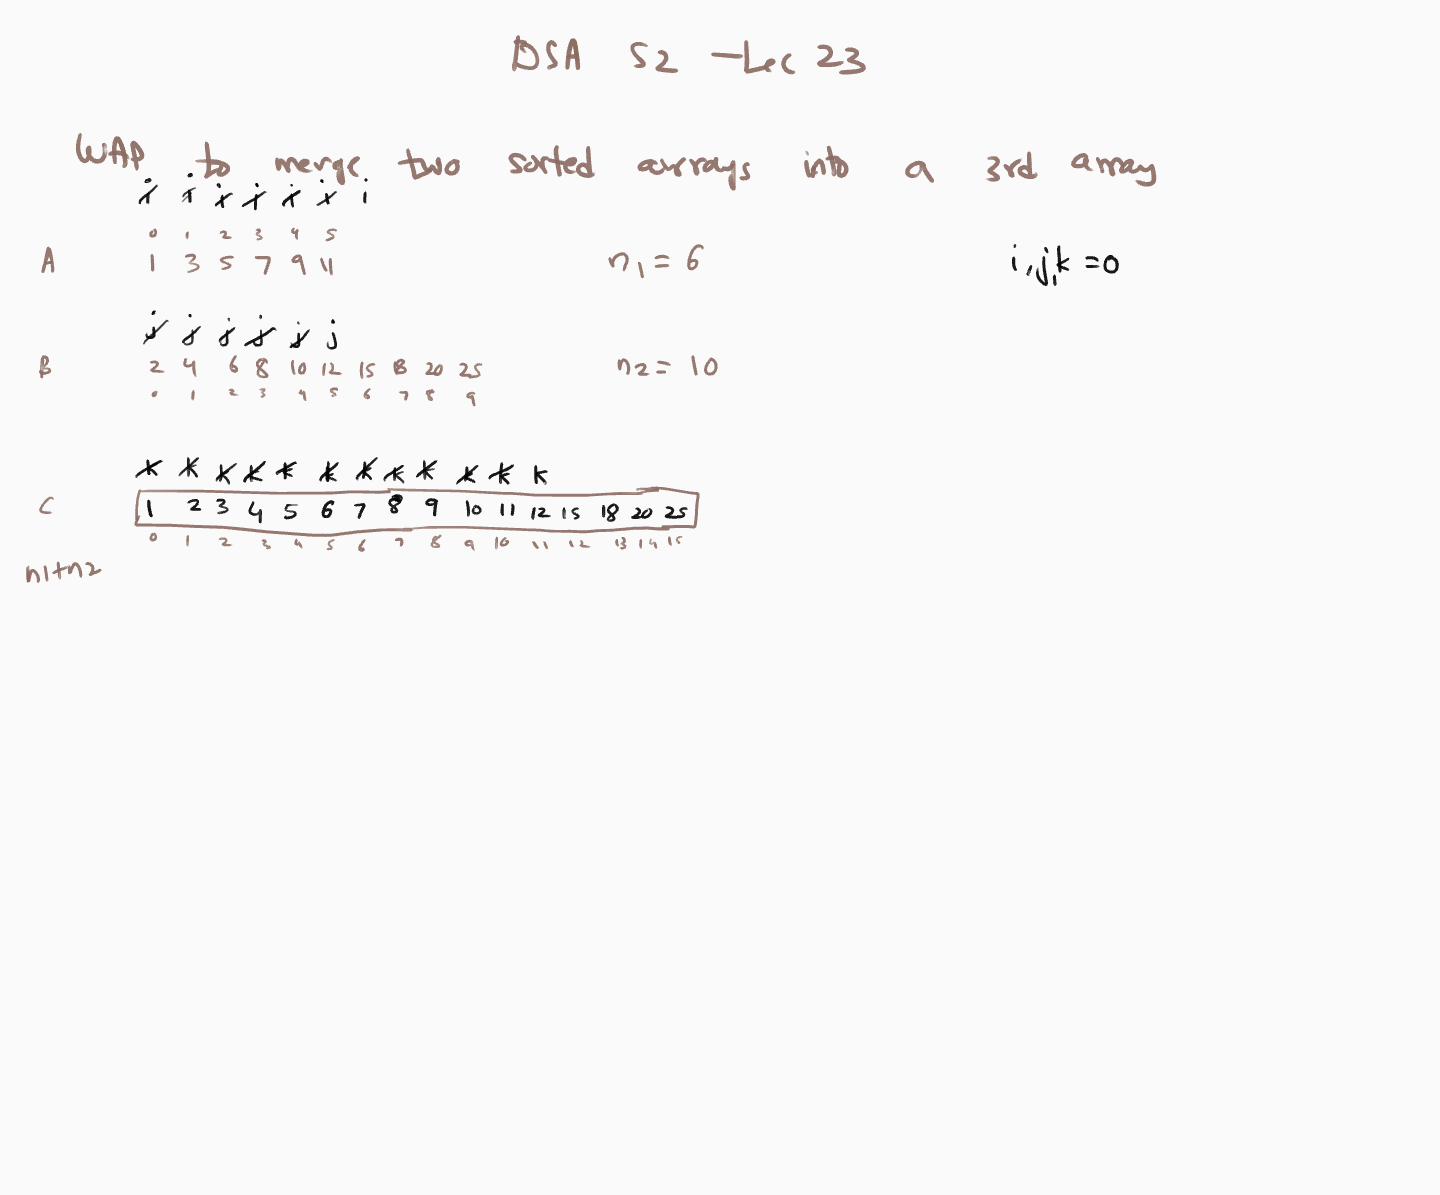 DSA S2 - Lec 23
WAP to merge two sorted arrays into a 3rd array
i i i i i i i
0 1 2 3 4 5
A 1 3 5 7 9 11 n1 = 6 i,j,k = 0
j j j j j j
B 2 4 6 8 10 12 15 18 20 25 n2 = 10
0 1 2 3 4 5 6 7 8 9
k k k k k k k k k k k k
C 1 2 3 4 5 6 7 8 9 10 11 12 15 18 20 25
0 1 2 3 4 5 6 7 8 9 10 11 12 13 14 15
n1+n2